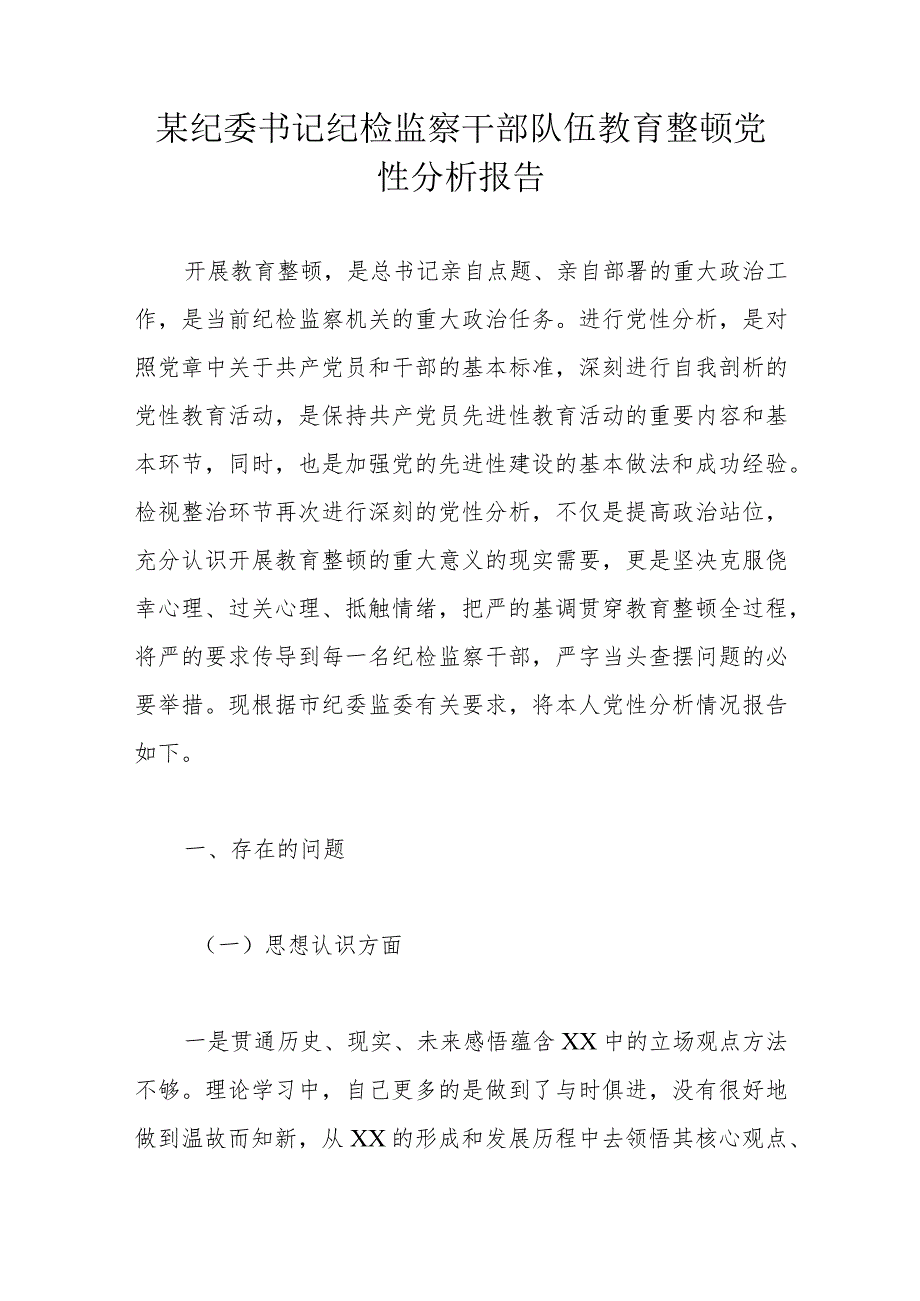 某纪委书记纪检监察干部队伍教育整顿党
性分析报告
开展教育整顿，是总书记亲自点题、亲自部署的重大政治工
作，是当前纪检监察机关的重大政治任务。进行党性分析，是对
照党章中关于共产党员和干部的基本标准，深刻进行自我剖析的
党性教育活动，是保持共产党员先进性教育活动的重要内容和基
本环节，同时，也是加强党的先进性建设的基本做法和成功经验。
检视整治环节再次进行深刻的党性分析，不仅是提高政治站位，
充分认识开展教育整顿的重大意义的现实需要，更是坚决克服侥
幸心理、过关心理、抵触情绪，把严的基调贯穿教育整顿全过程，
将严的要求传导到每一名纪检监察干部，严字当头查摆问题的必
要举措。现根据市纪委监委有关要求，将本人党性分析情况报告
如下。
一、存在的问题
（一）思想认识方面
一是贯通历史、现实、未来感悟蕴含 XX 中的立场观点方法
不够。理论学习中，自己更多的是做到了与时俱进，没有很好地
做到温故而知新，从 XX 的形成和发展历程中去领悟其核心观点、